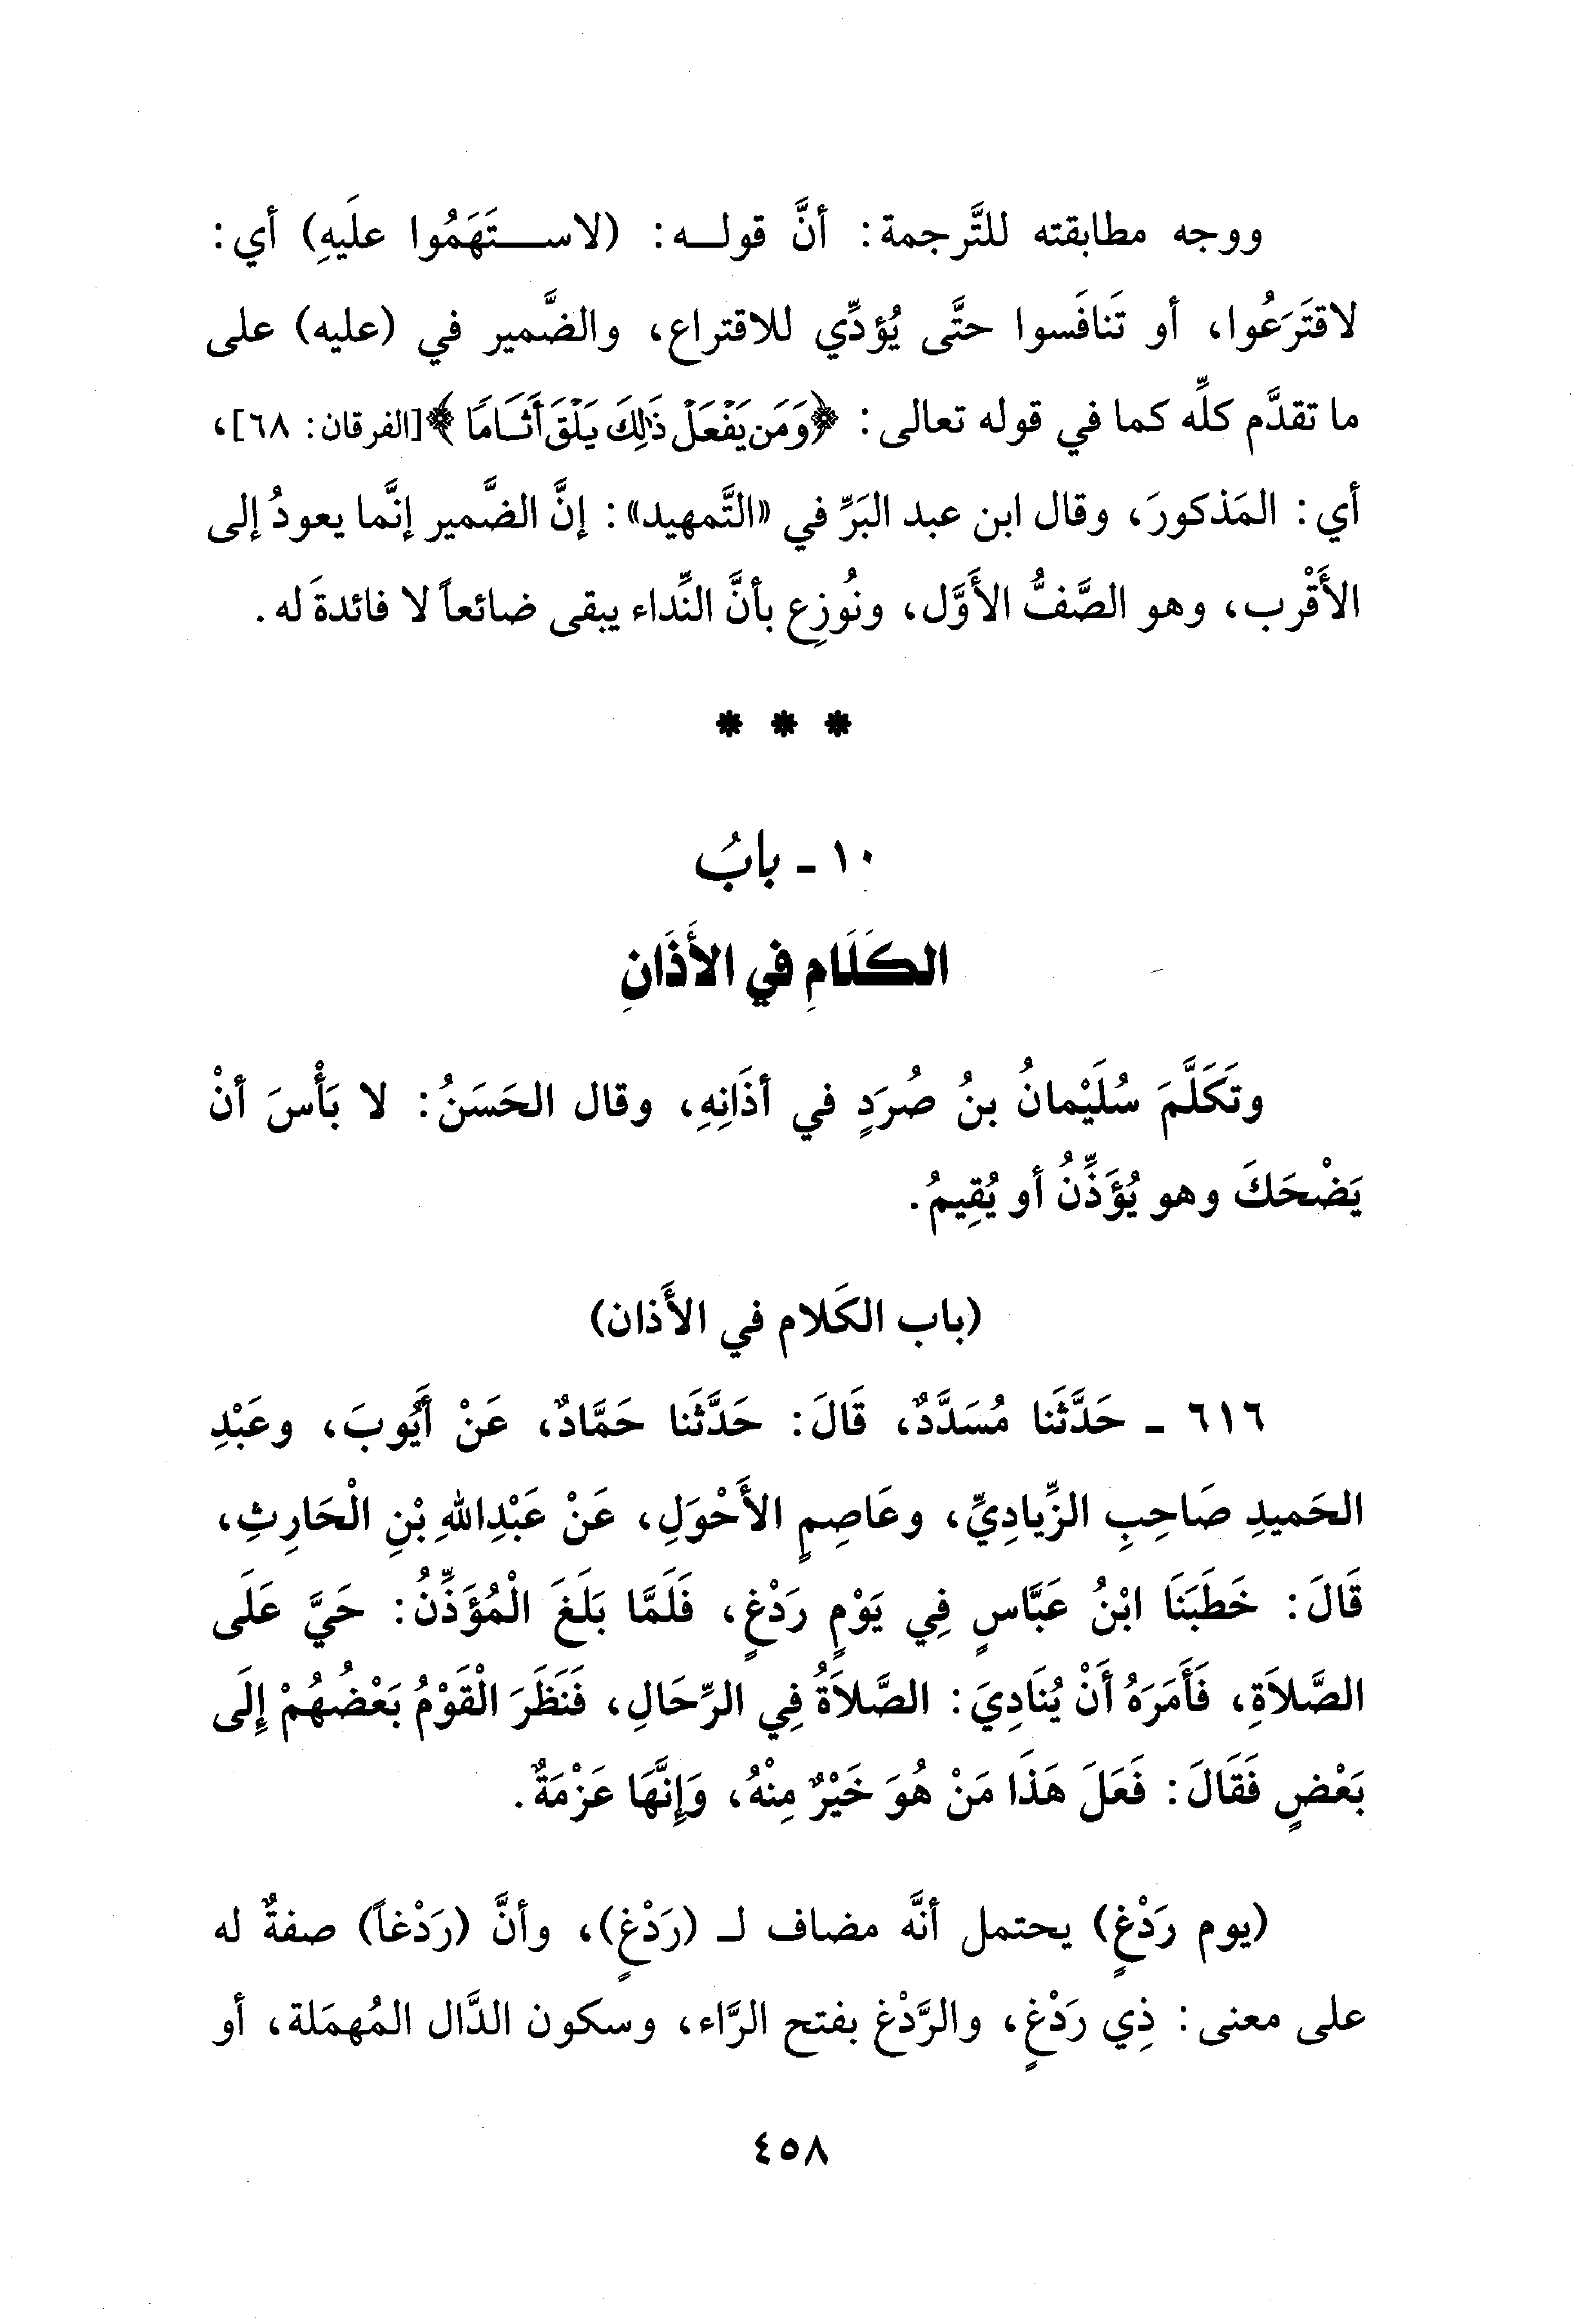 ووجه مطابقته للتَّرجمة: أنَّ قولـه: (لاسـتَهَمُوا علَيهِ) أي:
لاقتَرَعُوا، أو تَنافَسوا حتَّى يُؤدِّي للاقتراع، والضَّمير في (عليه) على
ما تقدَّم كلِّه كما في قوله تعالى: ﴿وَمَن يَفْعَلْ ذَٰلِكَ يَلْقَ أَثَامًا﴾ [الفرقان: ٦٨]،
أي: المَذكورَ، وقال ابن عبد البَرِّ في «التَّمهيد»: إنَّ الضَّمير إنَّما يعودُ إلى
الأَقْرب، وهو الصَّفُّ الأوَّل، ونُوزِع بأنَّ النِّداء يبقى ضائعاً لا فائدةَ له.
* * *
١٠ - بابُ
الكَلَامِ في الأَذَانِ
وتَكَلَّمَ سُلَيْمانُ بنُ صُرَدٍ في أذَانِهِ، وقال الحَسَنُ: لا بَأْسَ أنْ
يَضْحَكَ وهو يُؤَذِّنُ أو يُقِيمُ.
(باب الكَلام في الأَذان)
٦١٦ - حَدَّثَنا مُسَدَّدٌ، قَالَ: حَدَّثَنا حَمَّادٌ، عَنْ أَيُّوبَ، وعَبْدِ
الحَميدِ صَاحِبِ الزِّيادِيِّ، وعَاصِمٍ الأَحْوَلِ، عَنْ عَبْدِاللهِ بْنِ الْحَارِثِ،
قَالَ: خَطَبَنَا ابْنُ عَبَّاسٍ فِي يَوْمٍ رَدْغٍ، فَلَمَّا بَلَغَ الْمُؤَذِّنُ: حَيَّ عَلَى
الصَّلاَةِ، فَأَمَرَهُ أَنْ يُنَادِيَ: الصَّلاَةُ فِي الرِّحَالِ، فَنَظَرَ الْقَوْمُ بَعْضُهُمْ إِلَى
بَعْضٍ فَقَالَ: فَعَلَ هَذَا مَنْ هُوَ خَيْرٌ مِنْهُ، وَإِنَّهَا عَزْمَةٌ.
(يوم رَدْغٍ) يحتمل أنَّه مضاف لـ (رَدْغٍ)، وأنَّ (رَدْغاً) صفةٌ له
على معنى: ذِي رَدْغٍ، والرَّدْغ بفتح الرَّاء، وسكون الدَّال المُهمَلة، أو
٤٥٨